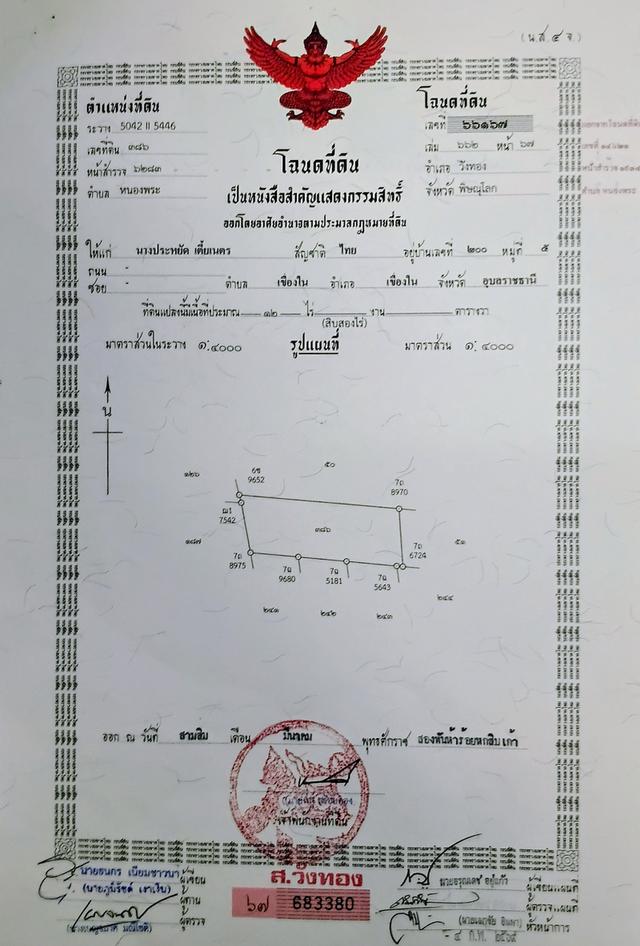 (น.ส.๔ จ.)
ตำแหน่งที่ดิน
ระวาง 5042 II 5446
เลขที่ดิน ๓๘๖
หน้าสำรวจ ๖๒๘๓
ตำบล หนองพระ
โฉนดที่ดิน
เลขที่ ๖๖๑๖๗
เล่ม ๖๖๒ หน้า ๖๗
อำเภอ วังทอง
จังหวัด พิษณุโลก
โฉนดที่ดิน
เป็นหนังสือสำคัญแสดงกรรมสิทธิ์
ออกโดยอาศัยอำนาจตามประมวลกฎหมายที่ดิน
ให้แก่ นางประหยัด เตี้ยเนตร สัญชาติ ไทย อยู่บ้านเลขที่ ๒๐๐ หมู่ที่ ๕
ถนน -
ซอย - ตำบล เขื่องใน อำเภอ เขื่องใน จังหวัด อุบลราชธานี
ที่ดินแปลงนี้มีเนื้อที่ประมาณ ๑๒ ไร่ - งาน - ตารางวา
(สิบสองไร่)
มาตราส่วนในระวาง ๑:๔๐๐๐ รูปแผนที่ มาตราส่วน ๑:๔๐๐๐
น
๑๒๖
๕๐
9652
7ถ
8970
7542
๓๘๖
๑๘๗
7ถ
8975
7ถ
6724
๕๑
9680
5181
5643
๒๔๑
๒๔๒
๒๔๓
๒๔๔
ออก ณ วันที่ สามสิบ เดือน มีนาคม พุทธศักราช สองพันห้าร้อยหกสิบเก้า
เจ้าพนักงานที่ดิน
ส.วังทอง
๖๗ 683380
นายธนกร เนียมชาวนา ผู้เขียน
ผู้ทาน
ผู้ตรวจ
นายอรุณเดช อยู่แก้ว ผู้เขียนแผนที่
ผู้ตรวจ
หัวหน้าการ